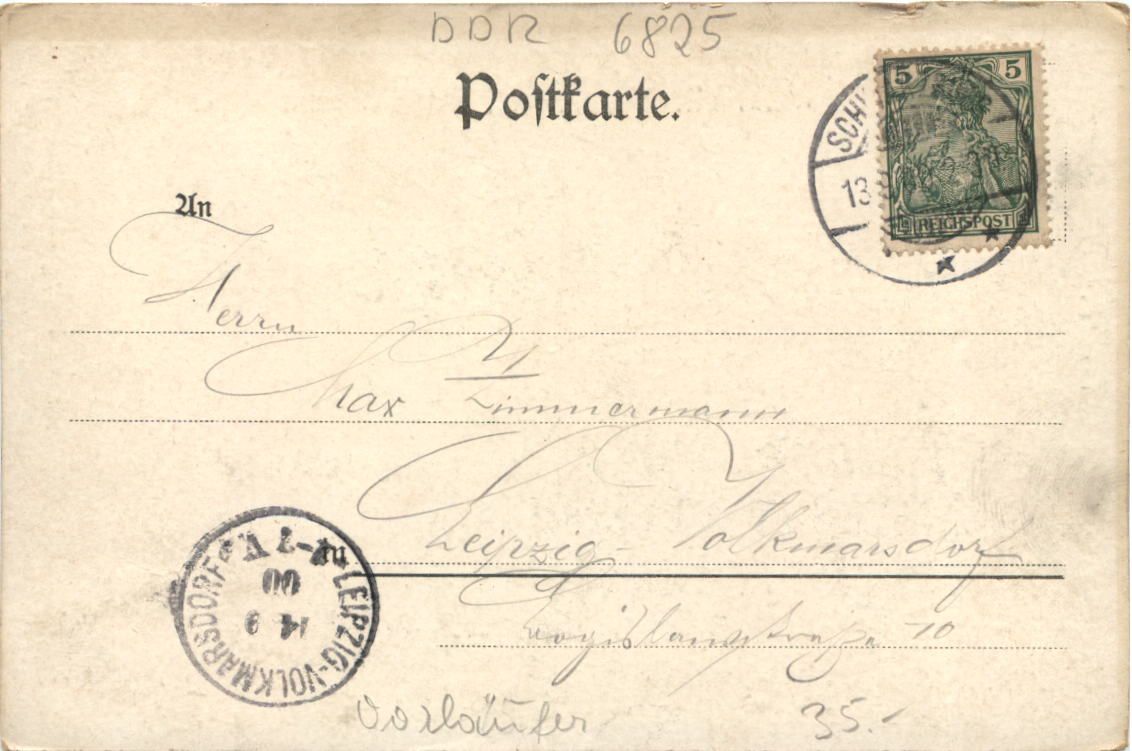 DDR 6825
Postkarte.
5 5
REICHSPOST
SCH
13
An
Herrn
Max Zimmermann
Leipzig-Volkmarsdorf
in
LEIPZIG-VOLKMARSDORF
14 9
00
7 V
10
Vorläufer 35.-